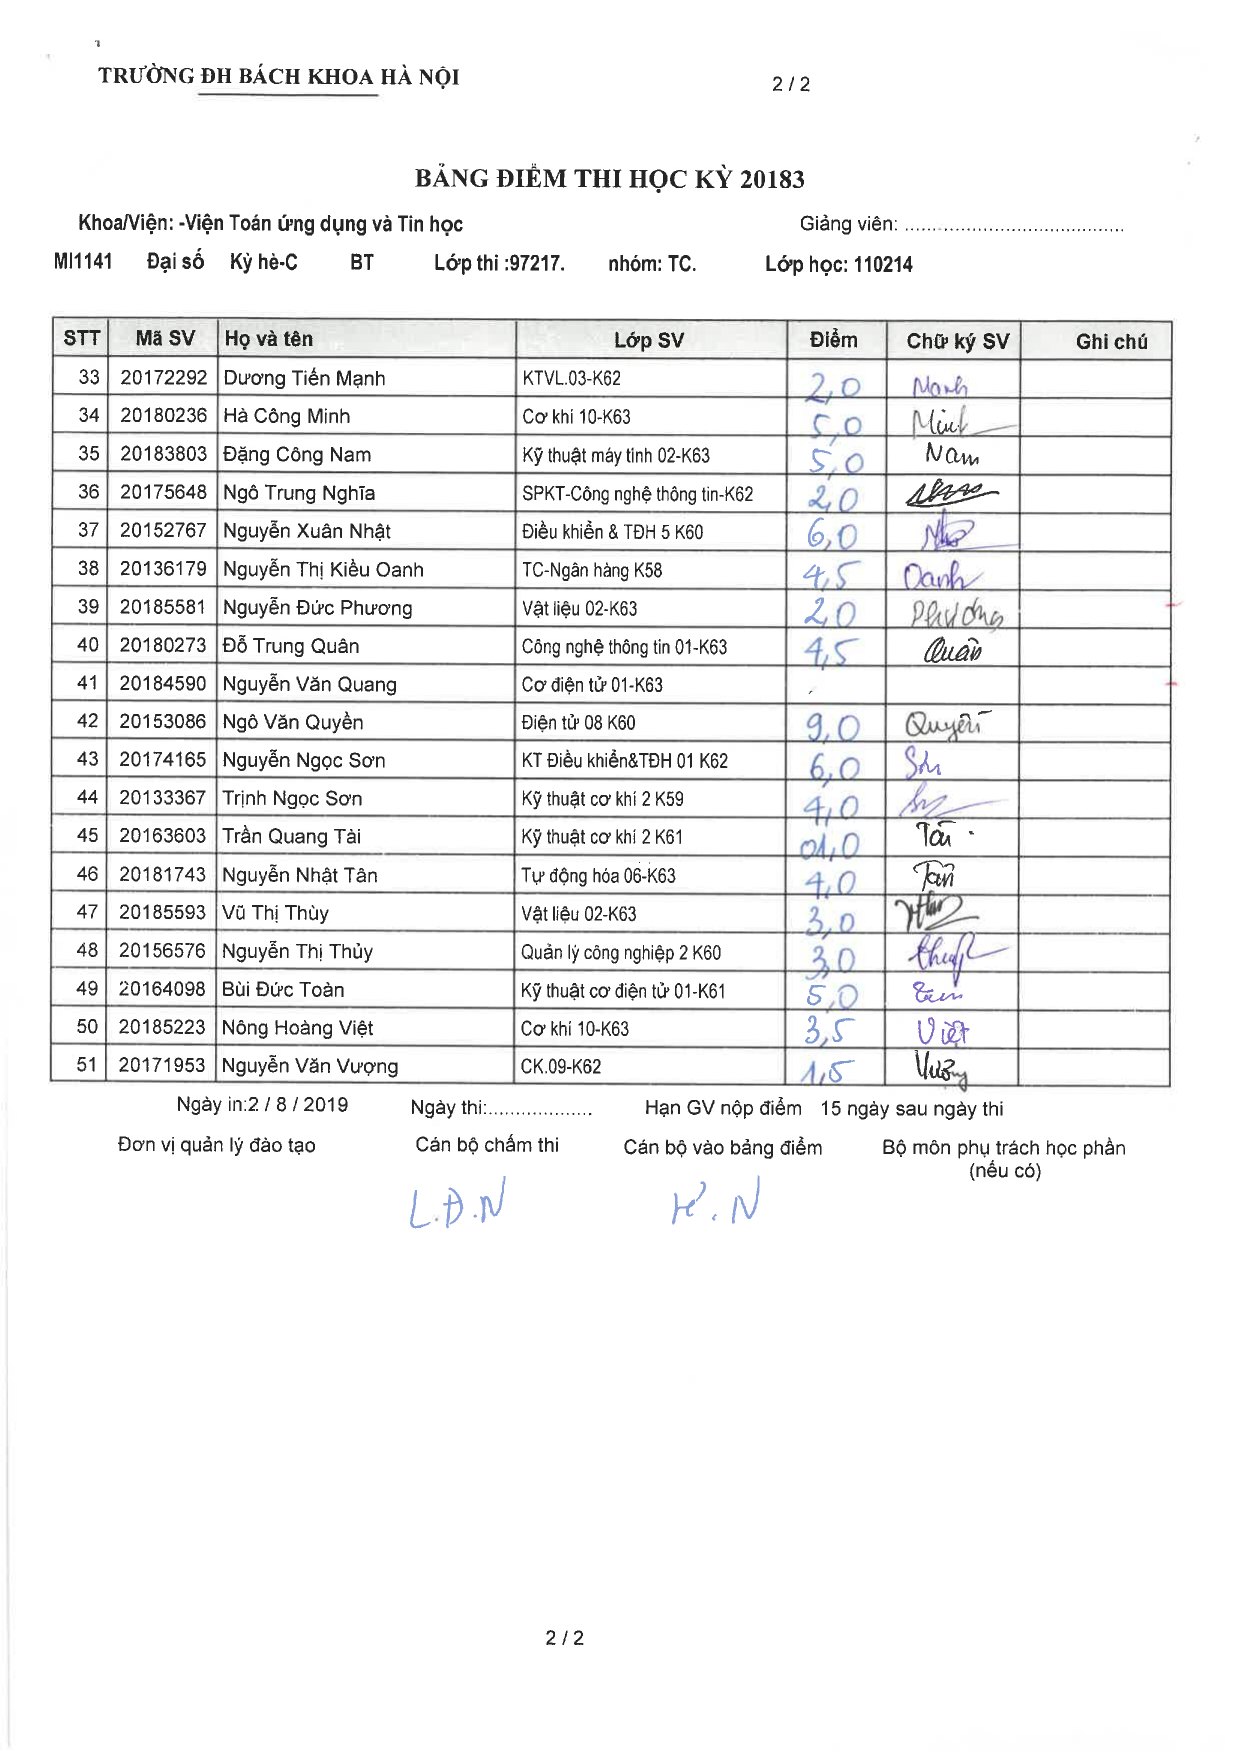 TRƯỜNG ĐH BÁCH KHOA HÀ NỘI 2 / 2
BẢNG ĐIỂM THI HỌC KỲ 20183
Khoa/Viện: -Viện Toán ứng dụng và Tin học Giảng viên: ........................................
MI1141 Đại số Kỳ hè-C BT Lớp thi :97217. nhóm: TC. Lớp học: 110214
STT Mã SV Họ và tên Lớp SV Điểm Chữ ký SV Ghi chú
33 20172292 Dương Tiến Mạnh KTVL.03-K62 2,0 Manh
34 20180236 Hà Công Minh Cơ khí 10-K63 5,0 Minh
35 20183803 Đặng Công Nam Kỹ thuật máy tính 02-K63 5,0 Nam
36 20175648 Ngô Trung Nghĩa SPKT-Công nghệ thông tin-K62 2,0
37 20152767 Nguyễn Xuân Nhật Điều khiển & TĐH 5 K60 6,0
38 20136179 Nguyễn Thị Kiều Oanh TC-Ngân hàng K58 4,5 Oanh
39 20185581 Nguyễn Đức Phương Vật liệu 02-K63 2,0 Phương
40 20180273 Đỗ Trung Quân Công nghệ thông tin 01-K63 4,5 Quân
41 20184590 Nguyễn Văn Quang Cơ điện tử 01-K63
42 20153086 Ngô Văn Quyền Điện tử 08 K60 9,0 Quyền
43 20174165 Nguyễn Ngọc Sơn KT Điều khiển&TĐH 01 K62 6,0 Sơn
44 20133367 Trịnh Ngọc Sơn Kỹ thuật cơ khí 2 K59 4,0
45 20163603 Trần Quang Tài Kỹ thuật cơ khí 2 K61 01,0 Tài
46 20181743 Nguyễn Nhật Tân Tự động hóa 06-K63 4,0 Tân
47 20185593 Vũ Thị Thùy Vật liệu 02-K63 3,0
48 20156576 Nguyễn Thị Thủy Quản lý công nghiệp 2 K60 3,0
49 20164098 Bùi Đức Toàn Kỹ thuật cơ điện tử 01-K61 5,0
50 20185223 Nông Hoàng Việt Cơ khí 10-K63 3,5 Việt
51 20171953 Nguyễn Văn Vượng CK.09-K62 1,5 Vượng
Ngày in:2 / 8 / 2019 Ngày thi:................... Hạn GV nộp điểm 15 ngày sau ngày thi
Đơn vị quản lý đào tạo Cán bộ chấm thi Cán bộ vào bảng điểm Bộ môn phụ trách học phần
(nếu có)
L.Đ.N
2 / 2